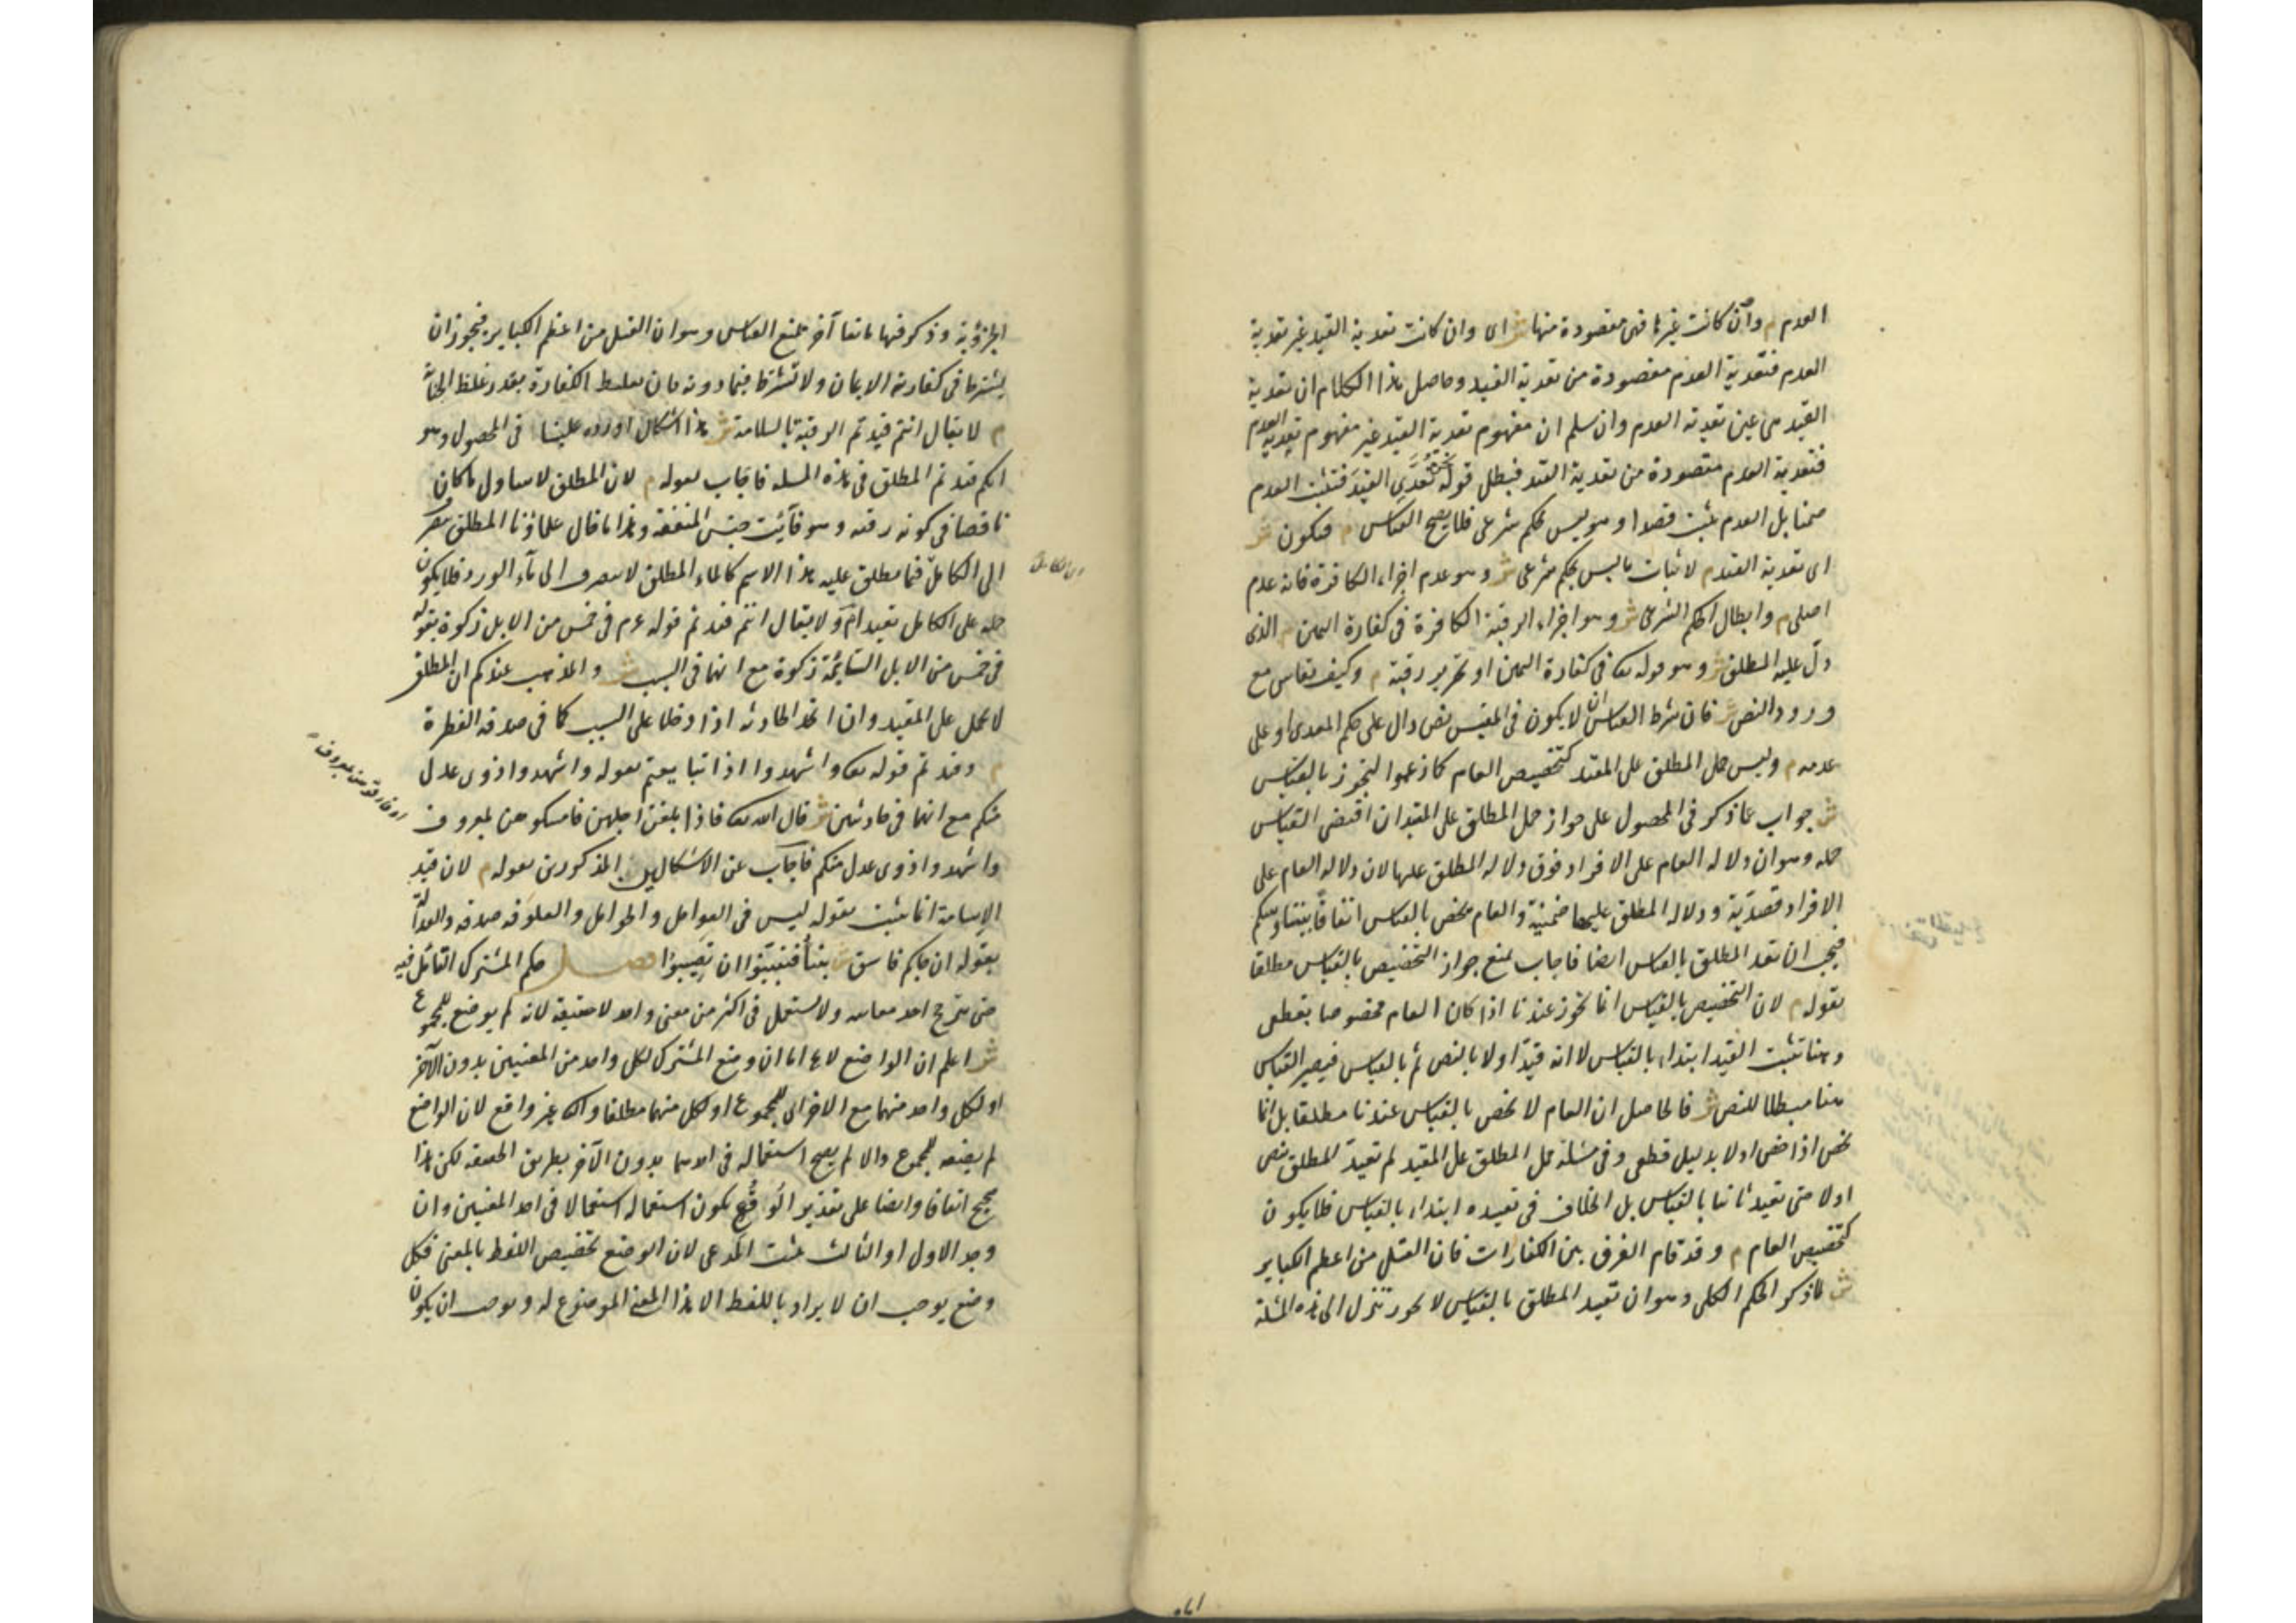 العدم م وان كانت غيرها فهى مقصودة منها ش اى وان كانت تعدية القيد غير تعدية
العدم فتعدية العدم مقصودة من تعدية القيد وحاصل هذا الكلام ان تعدية
القيد هى عين تعدية العدم وان سلم ان مفهوم تعدية القيد غير مفهوم تعدية العدم
فتعدية العدم مقصودة من تعدية القيد فبطل قوله نحن نعدى القيد فثبت العدم
ضمنا بل العدم يثبت قصدا وهو ليس بحكم شرعى فلا يصح القياس م فيكون ش
اى تعدية القيد م لاثبات ما ليس بحكم شرعى ش وهو عدم اجزاء الكافرة فانه عدم
اصلى م وابطال الحكم الشرعى ش وهو اجزاء الرقبة الكافرة فى كفارة اليمين م الذى
دل عليه المطلق ش وهو قوله تعه فى كفارة اليمين او تحرير رقبة م وكيف يقاس مع
ورود النص ش فان شرط القياس ان لا يكون فى المقيس نص دال على حكم المعدى او على
عدمه م وليس حمل المطلق على المقيد كتخصيص العام كما زعموا ليجوز بالقياس
ش جواب عما ذكر فى المحصول على جواز حمل المطلق على المقيد ان اقتضى القياس
حمله وهو ان دلالة العام على الافراد فوق دلالة المطلق عليها لان دلالة العام على
الافراد قصدية ودلالة المطلق عليها ضمنية والعام يخص بالقياس اتفاقا بيننا وبينكم
فيجب ان يقيد المطلق بالقياس ايضا فاجاب بمنع جواز التخصيص بالقياس مطلقا
بقوله م لان التخصيص بالقياس انما يجوز عندنا اذا كان العام مخصوصا بقطعى
وهنا تثبت القيد ابتداء بالقياس لا انه قيد اولا بالنص ثم بالقياس فيصير القياس
هنا مبطلا للنص ش فالحاصل ان العام لا يخص بالقياس عندنا مطلقا بل انما
يخص اذا خص اولا بدليل قطعى وفى مسئلة حمل المطلق على المقيد لم تقيد المطلق بنص
اولا حتى تقيد ثانيا بالقياس بل الخلاف فى تقييده ابتداء بالقياس فلا يكون
كتخصيص العام م وقد قام الفرق بين الكفارات فان القتل من اعظم الكباير
ش لما ذكر الحكم الكلى وهو ان تقييد المطلق بالقياس لا يجوز تنزل الى هذه المسئلة
الجزؤية وذكر فيها مانعا آخر يمنع القياس وهو ان القتل من اعظم الكباير فيجوز ان
يشترط فى كفارته الايمان ولا تشترط فيما دونه فان تغليظ الكفارة بقدر غلظ الجناية
م لا يقال انتم قيدتم الرقبة بالسلامة ش هذا اشكال اورده علينا فى المحصول وهو
انكم قيدتم المطلق فى هذه المسئلة فاجاب بقوله م لان المطلق لا يتناول ما كان
ناقصا فى كونه رقبة وهو فآئت جنس المنفعة وهذا ما قال علماؤنا المطلق ينصرف
الى الكامل فيما يطلق عليه هذا الاسم كالماء المطلق لا ينصرف الى مآء الورد فلا يكون
حمله على الكامل تقييدا م ولا يقال انتم قيدتم قوله ع م فى خمس من الابل زكوة بقوله
فى خمس من الابل السائمة زكوة مع انهما فى السبب ش والمذهب عندكم ان المطلق
لا يحمل على المقيد وان اتحد الحادثة اذا دخلا على السبب كما فى صدقة الفطرة
م وقيدتم قوله تعه واشهدوا اذا تبايعتم بقوله واشهدوا ذوى عدل
منكم مع انهما فى حادثتين ش قال الله تعه فاذا بلغن اجلهن فامسكوهن بمعروف
او فارقوهن بمعروف
واشهدوا ذوى عدل منكم فاجاب عن الاشكالين المذكورين بقوله م لان قيد
الاسامة انما يثبت بقوله ليس فى العوامل والحوامل والعلوفة صدقة والعدالة
بقوله ان جاءكم فاسق بنبأ فتبينوا ان تصيبوا فصل حكم المشترك التأمل فيه
حتى يترجح احد معانيه ولا يستعمل فى اكثر من معنى واحد لا حقيقة لانه لم يوضع للمجموع
ش اعلم ان الواضع لا يخ اما ان وضع المشترك لكل واحد من المعنيين بدون الآخر
او لكل واحد منهما مع الاخر اى للمجموع او لكل منهما مطلقا والثانى غير واقع لان الواضع
لم يضعه للمجموع والا لم يصح استعماله فى احدهما بدون الآخر بطريق الحقيقة لكن هذا
صحيح اتفاقا وايضا على تقدير الوقوع يكون استعماله استعمالا فى احد المعنيين وان
وجد الاول او الثالث يثبت المدعى لان الوضع تخصيص اللفظ بالمعنى فكل
وضع يوجب ان لا يراد باللفظ الا هذا المعنى الموضوع له ويوجب ان يكون